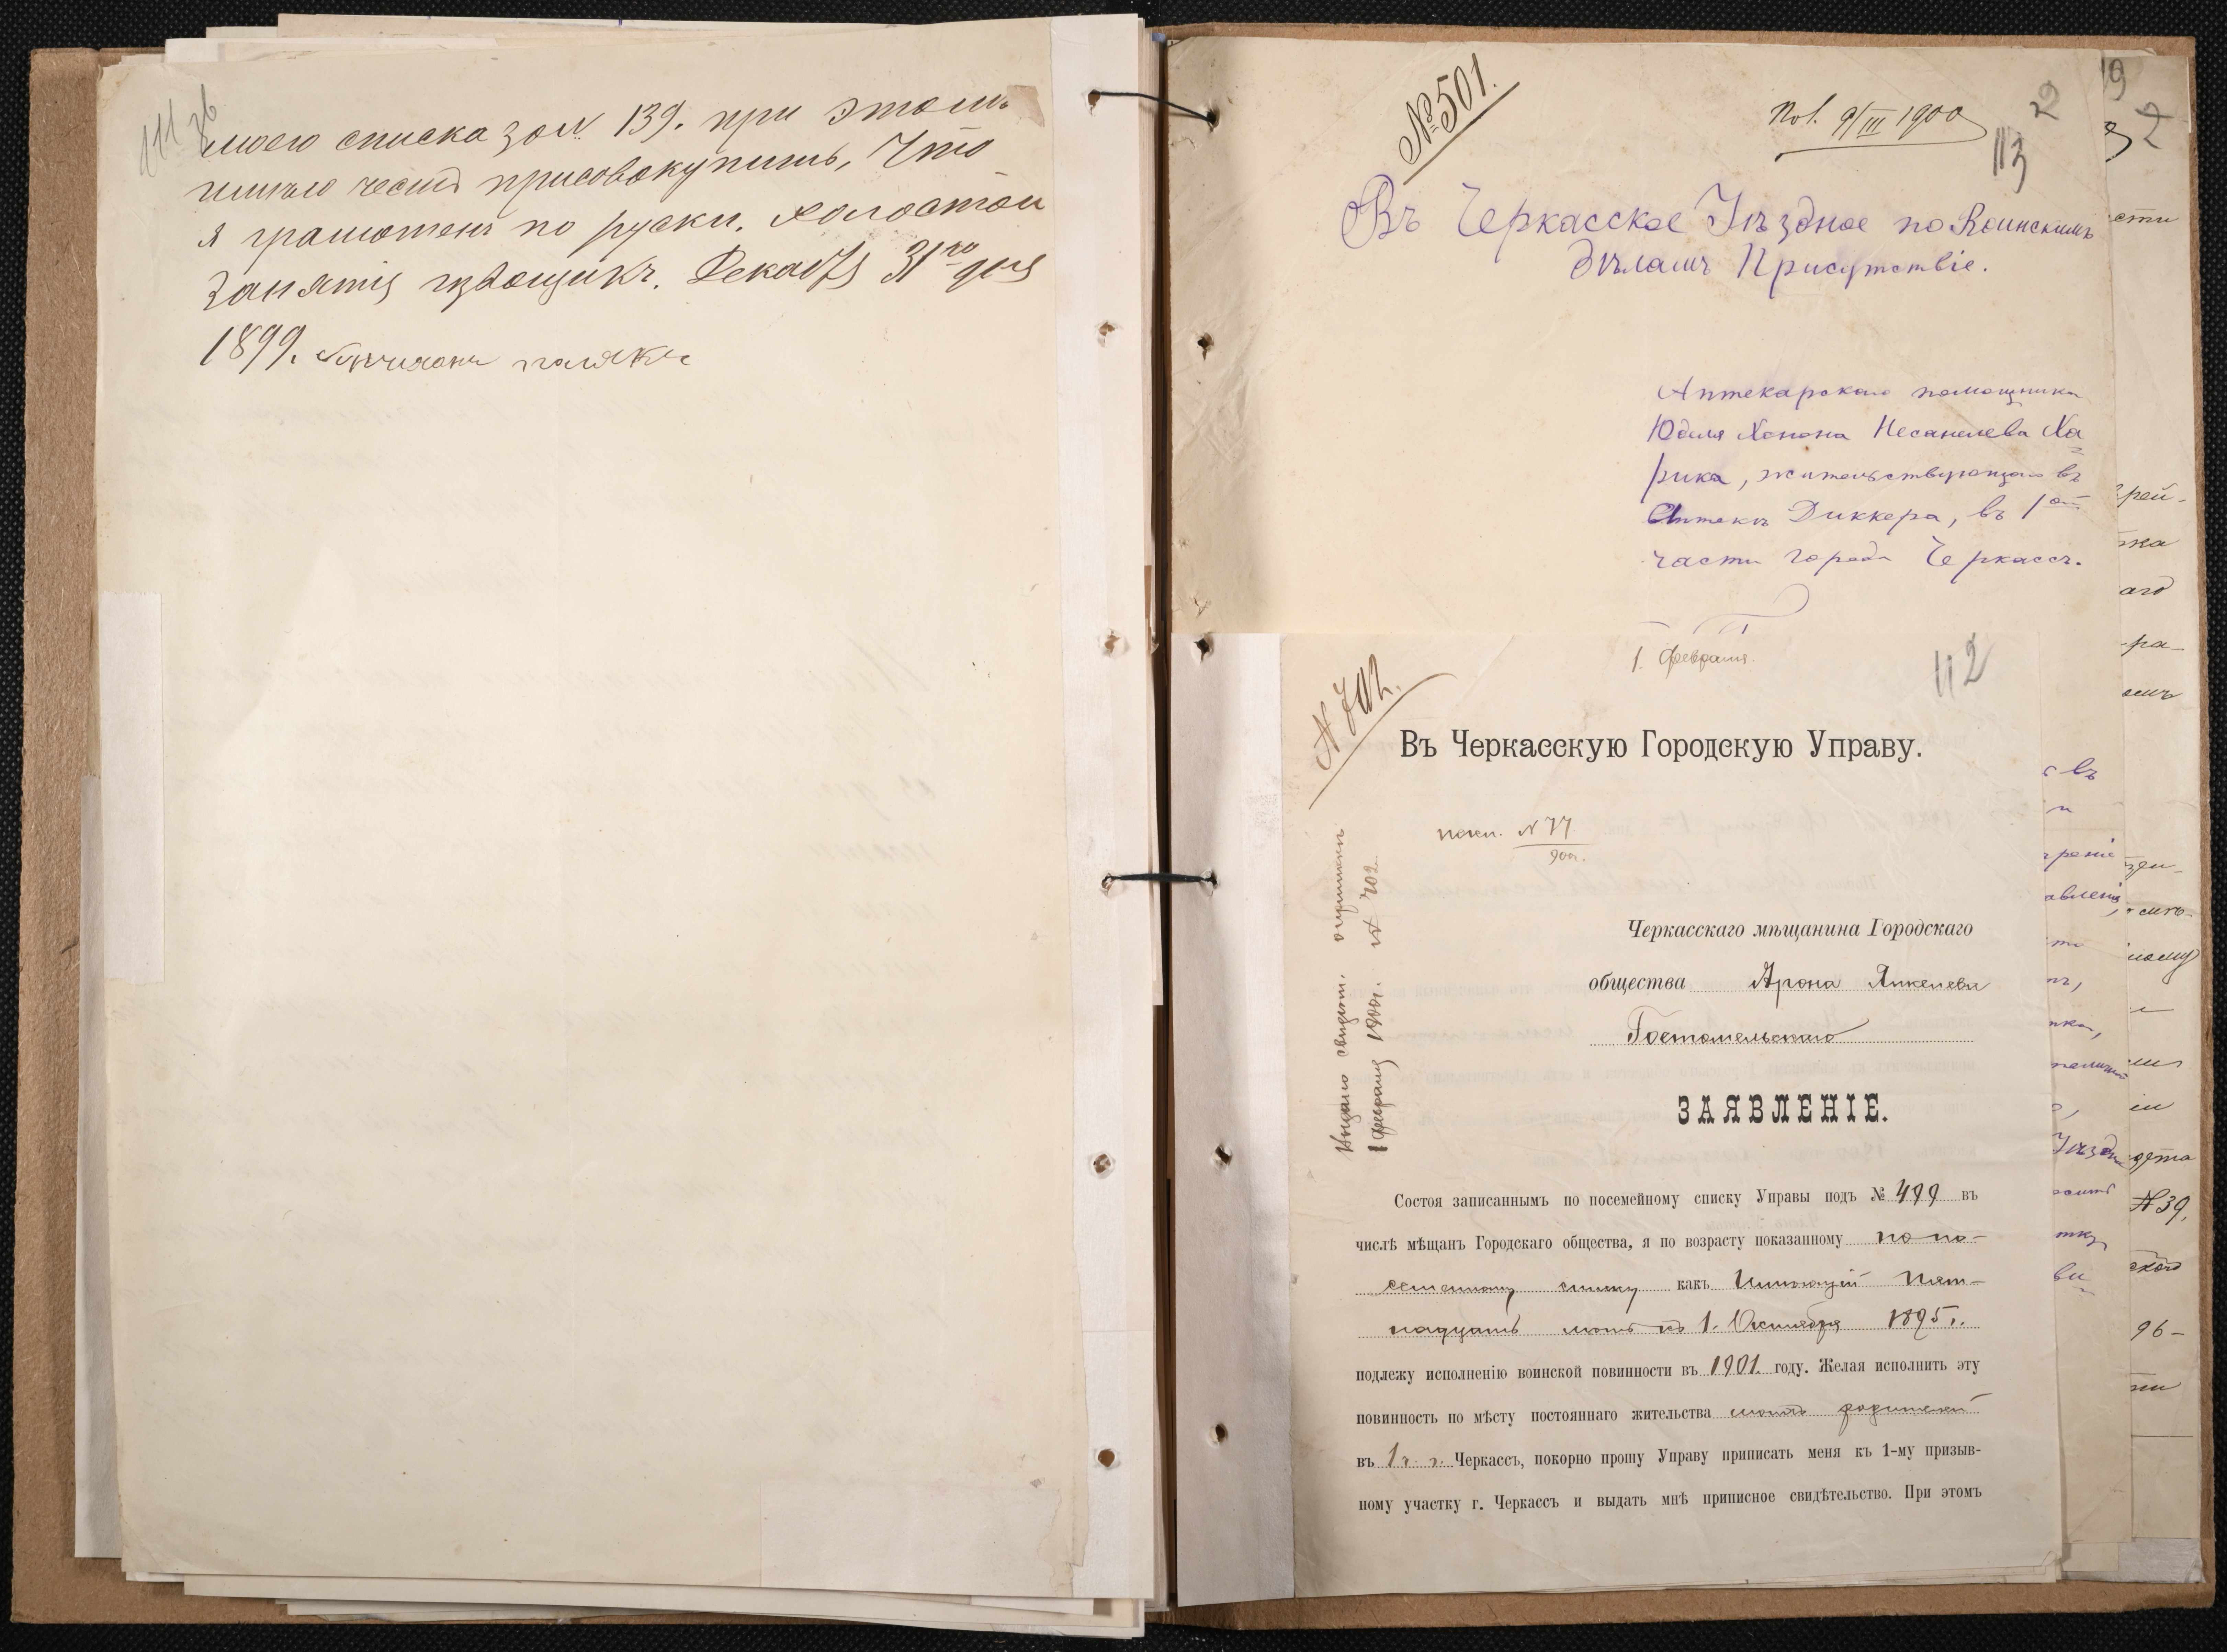 111 об
моего списка за № 139. при этомъ
имѣю честь присовокупить, что
я грамотенъ по руски. холостой
занятія извощикъ. Декабря 31го дня
1899.
№ 501.
Пол. 9/III 1900
29
113
Въ Черкасское Уѣздное по Воинскимъ
дѣламъ Присутствіе.
Аптекарскаго помощника
Юделя Хонона Несанелева Ха=
рика, жительствующаго въ
Аптекѣ Диккера, въ 1ой
части города Черкассъ.
1. Февраля.
112
№ 702.
Въ Черкасскую Городскую Управу.
№ 77
900г.
Выдано свидѣт.
1 февраля 1900г. № 702
Черкасскаго мѣщанина Городскаго
общества Арона Янкелева
Гостомельскаго
ЗАЯВЛЕНІЕ.
Состоя записаннымъ по посемейному списку Управы подъ № 499 въ
числѣ мѣщанъ Городскаго общества, я по возрасту показанному по по-
семейному списку какъ Имѣющій пят-
надцать лѣтъ къ 1. Октября 1895г.
подлежу исполненію воинской повинности въ 1901 году. Желая исполнить эту
повинность по мѣсту постояннаго жительства моихъ родителей
въ 1 ч. г. Черкассъ, покорно прошу Управу приписать меня къ 1-му призыв-
ному участку г. Черкассъ и выдать мнѣ приписное свидѣтельство. При этомъ